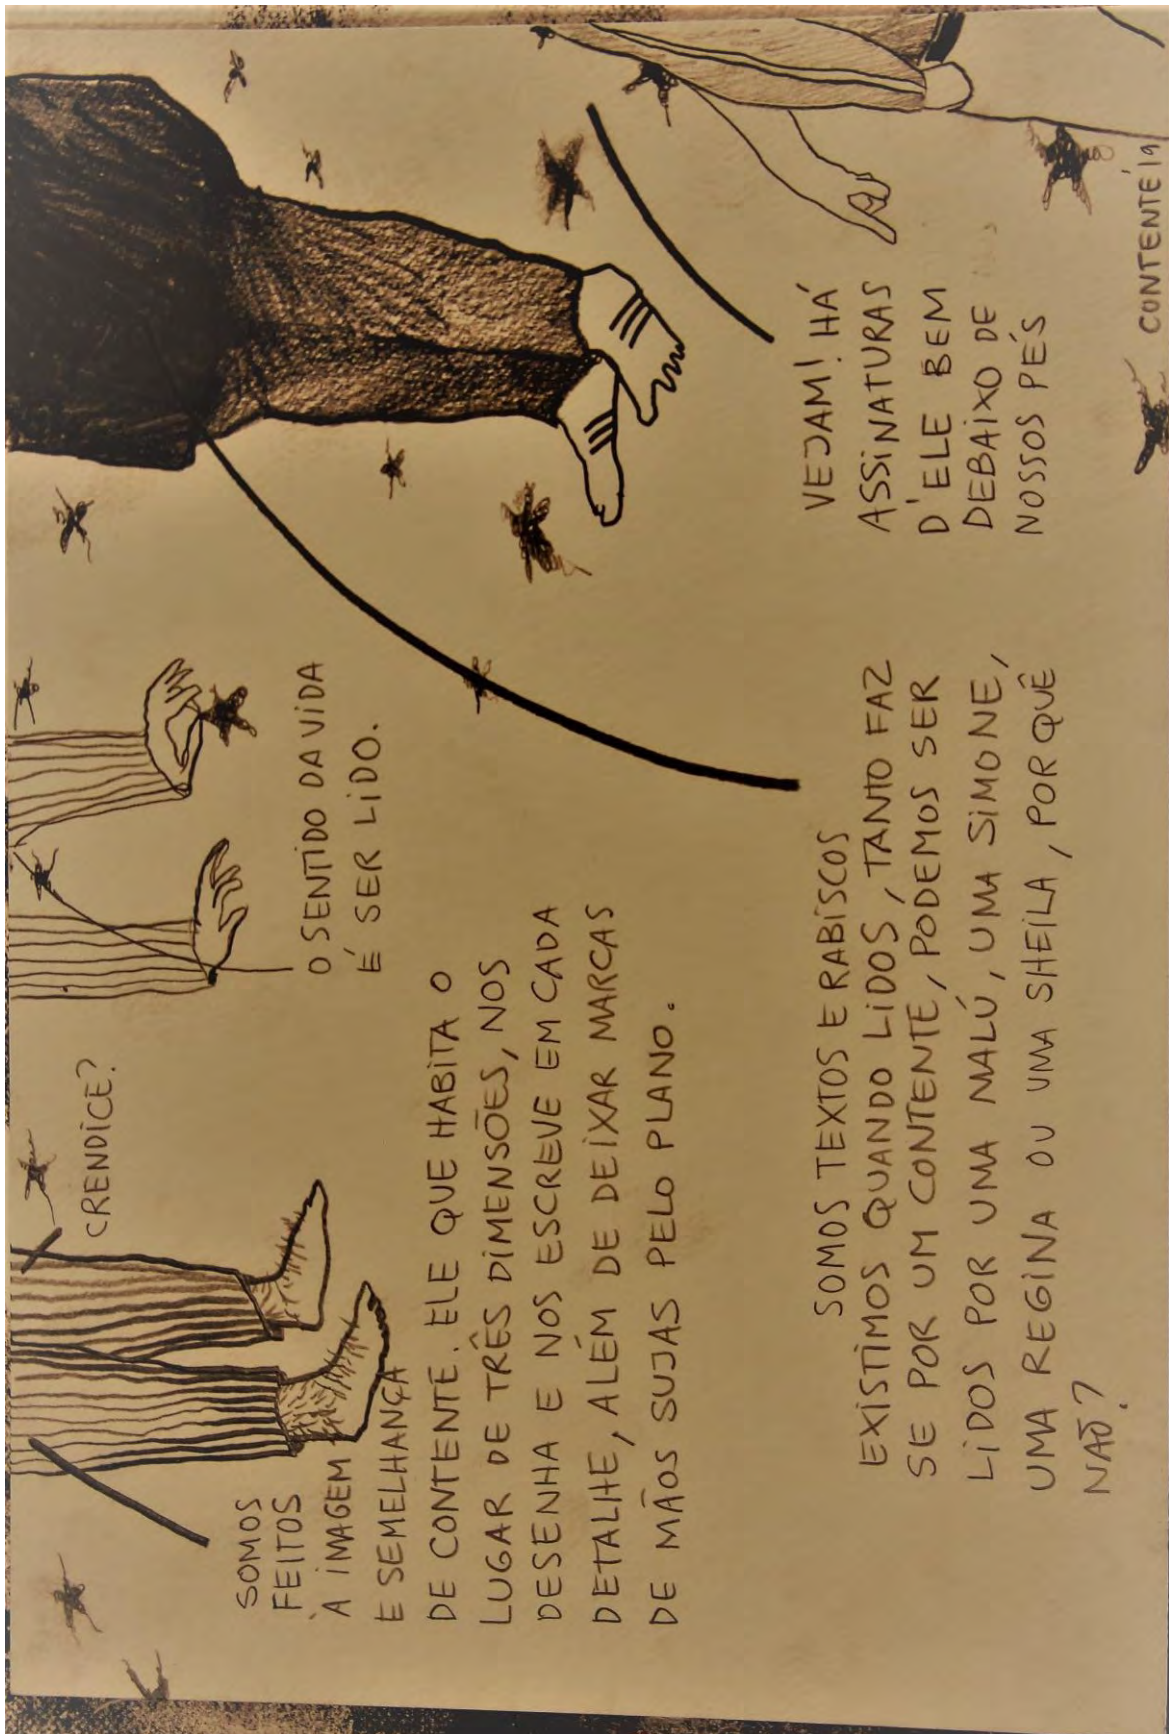 SOMOS
FEITOS
À IMAGEM
E SEMELHANÇA
DE CONTENTE. ELE QUE HABITA O
LUGAR DE TRÊS DIMENSÕES, NOS
DESENHA E NOS ESCREVE EM CADA
DETALHE, ALÉM DE DEIXAR MARCAS
DE MÃOS SUJAS PELO PLANO.
CRENDICE?
O SENTIDO DA VIDA
É SER LIDO.
SOMOS TEXTOS E RABISCOS
EXISTIMOS QUANDO LIDOS, TANTO FAZ
SE POR UM CONTENTE, PODEMOS SER
LIDOS POR UMA MALÚ, UMA SIMONE,
UMA REGINA OU UMA SHEILA, POR QUÊ
NÃO?
VEJAM! HÁ
ASSINATURAS
D'ELE BEM
DEBAIXO DE
NOSSOS PÉS
CONTENTE'19